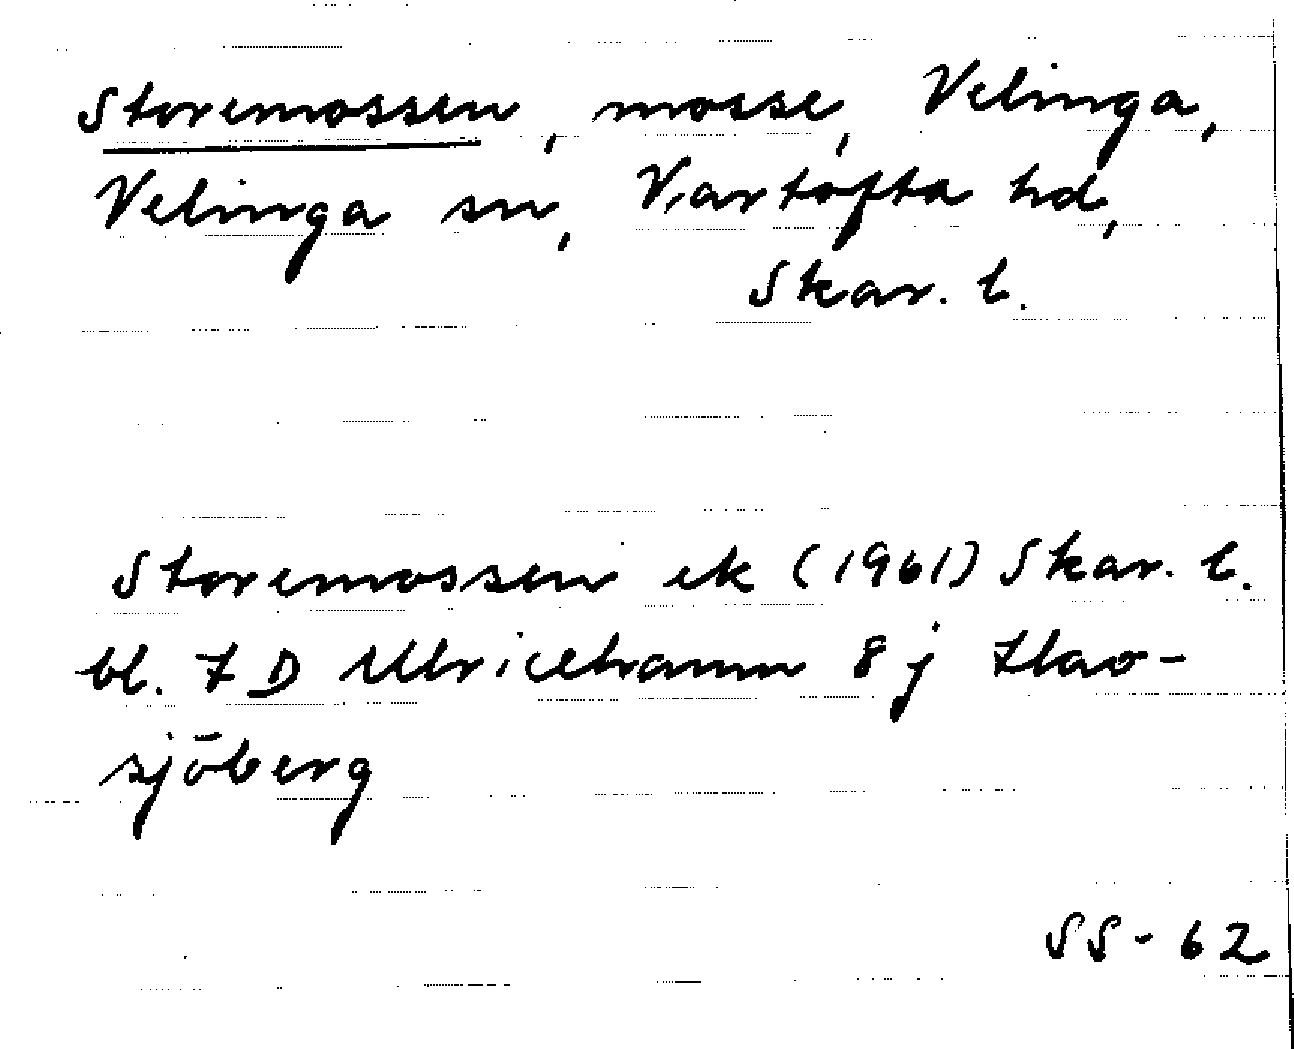 Storemossen, mosse, Velinga,
Velinga sn, Vartofta hd,
Skar. l.
Storemossen ek (1961) Skar. l.
bl. 7 D Ulricehamn 8 j Hav-
sjöberg
SS - 62